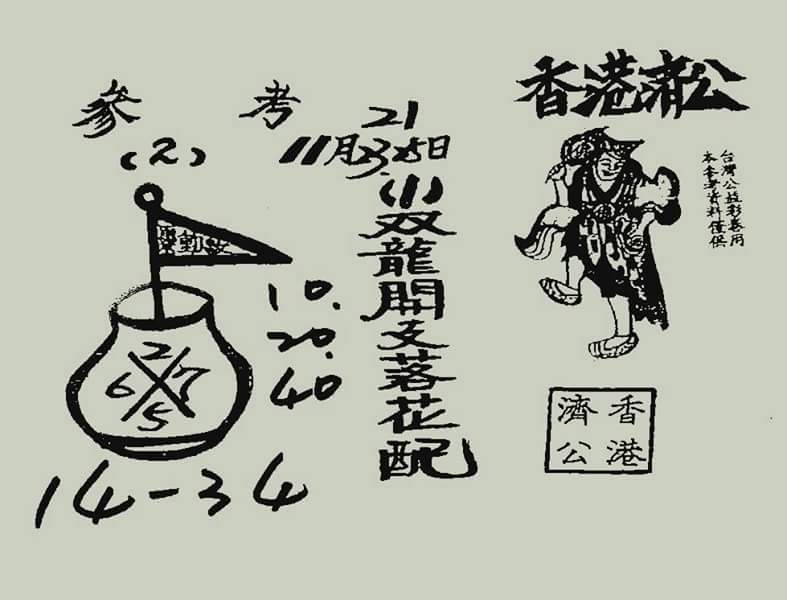 香港濟公
參考
21
11月23.25日
(1)
双龍開支落花配
(2)
10.
20.
40
2
6 7
5
14-34
台灣公益彩券用
本參考資料僅供
香港
濟公